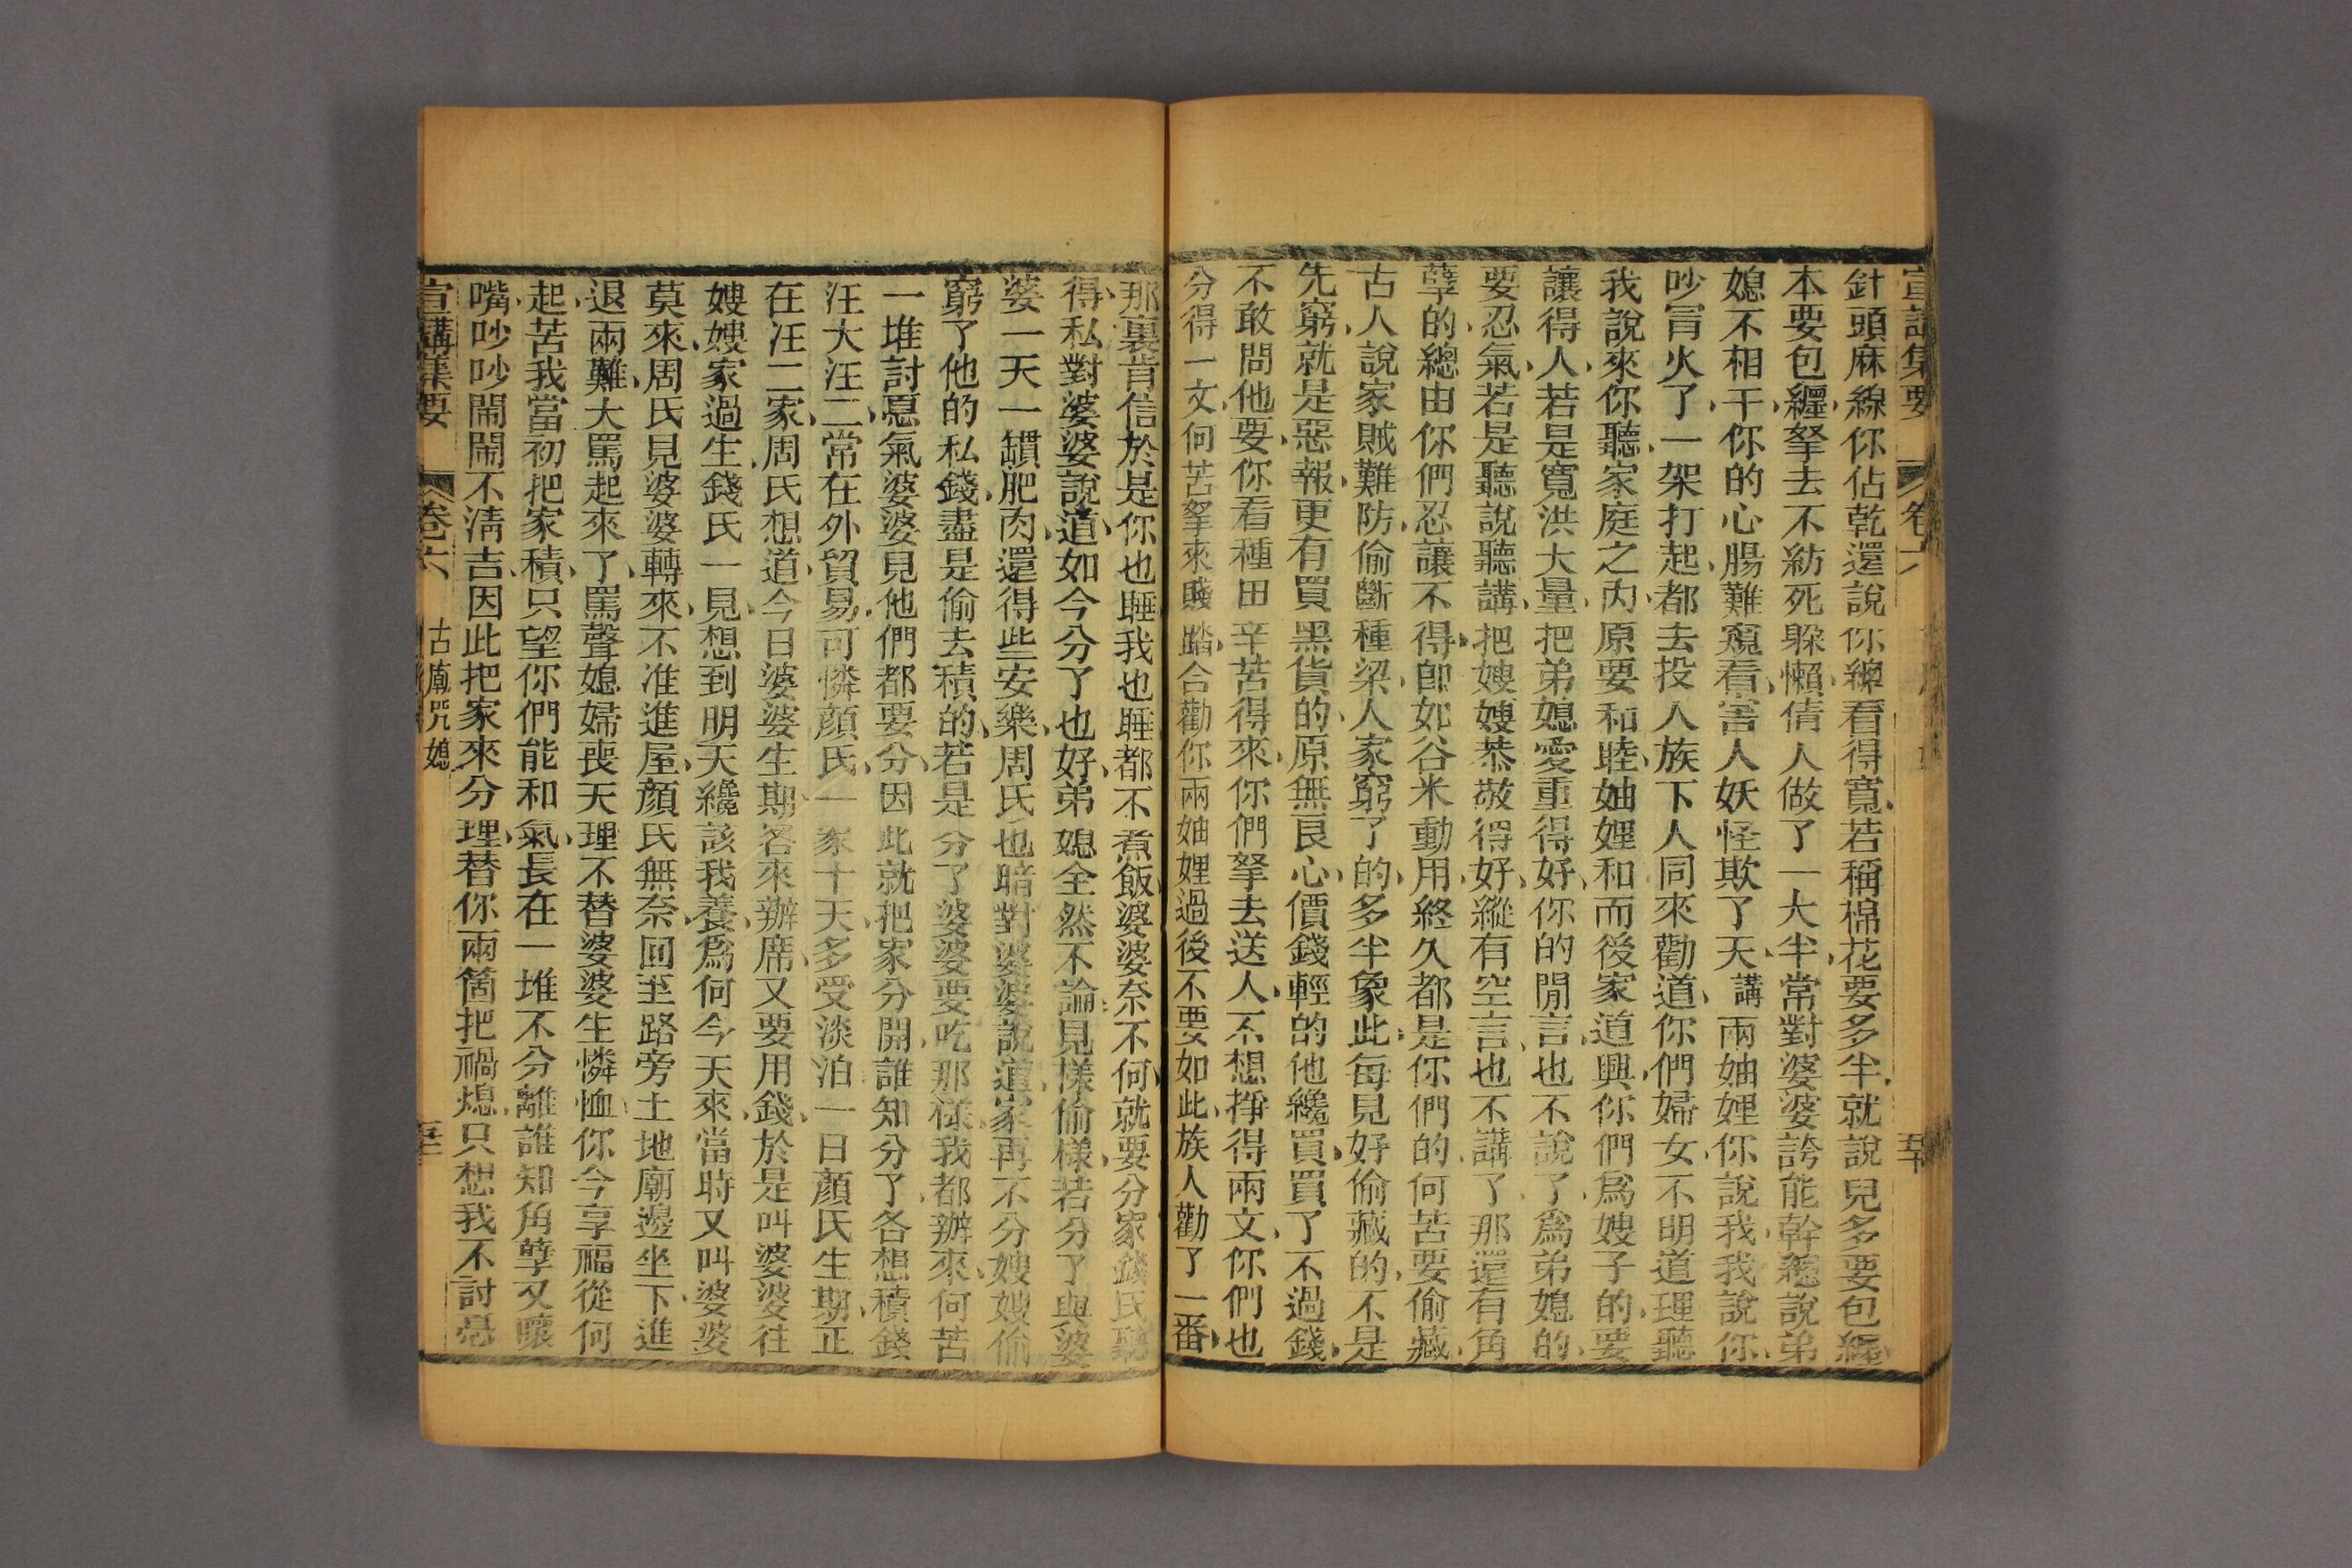 宣講集要 卷六
針頭麻線你佔乾還說你總看得寬若稱棉花要多半就說兒多要包纏
本要包纏拏去不紡死躲懶倩人做了一大半常對婆婆誇能幹總說弟
媳不相干你的心腸難窺看害人妖怪欺了天講兩妯娌你說我我說你
吵冐火了一架打起都去投人族下人同來勸道你們婦女不明道理聽
我說來你聽家庭之內原要和睦妯娌和而後家道興你們爲嫂子的要
讓得人若是寬洪大量把弟媳愛重得好你的閒言也不說了爲弟媳的
要忍氣若是聽說聽講把嫂嫂恭敬得好縱有空言也不講了那還有角
孽的總由你們忍讓不得卽如谷米動用終久都是你們的何苦要偷藏
古人說家賊難防偷斷種梁人家窮了的多半象此每見好偷藏的不是
先窮就是惡報更有買黑貨的原無良心價錢輕的他纔買買了不過錢
不敢問他要你看種田辛苦得來你們拏去送人不想掙得兩文你們也
分得一文何苦拏來賤踏合勸你兩妯娌過後不要如此族人勸了一番
那裏肯信於是你也睡我也睡都不煮飯婆婆奈不何就要分家錢氏聽
得私對婆婆說道如今分了也好弟媳全然不論見樣偷樣若分了與婆
婆一天一罐肥肉還得些安樂周氏也暗對婆婆說道家再不分嫂嫂偷
窮了他的私錢盡是偷去積的若是分了婆婆要吃那樣我都辦來何苦
一堆討惡氣婆婆見他們都要分因此就把家分開誰知分了各想積錢
汪大汪二常在外貿易可憐顏氏一家十天多受淡泊一日顏氏生期正
在汪二家周氏想道今日婆婆生期客來辦席又要用錢於是叫婆婆往
嫂嫂家過生錢氏一見想到明天纔該我養爲何今天來當時又叫婆婆
莫來周氏見婆婆轉來不准進屋顏氏無奈回至路旁土地廟邊坐下進
退兩難大罵起來了罵聲媳婦喪天理不替婆婆生憐恤你今享福從何
起苦我當初把家積只望你們能和氣長在一堆不分離誰知角孽又嚷
嘴吵吵鬧鬧不淸吉因此把家來分理替你兩箇把禍熄只想我不討惡
宣講集要 卷六 古廟咒媳